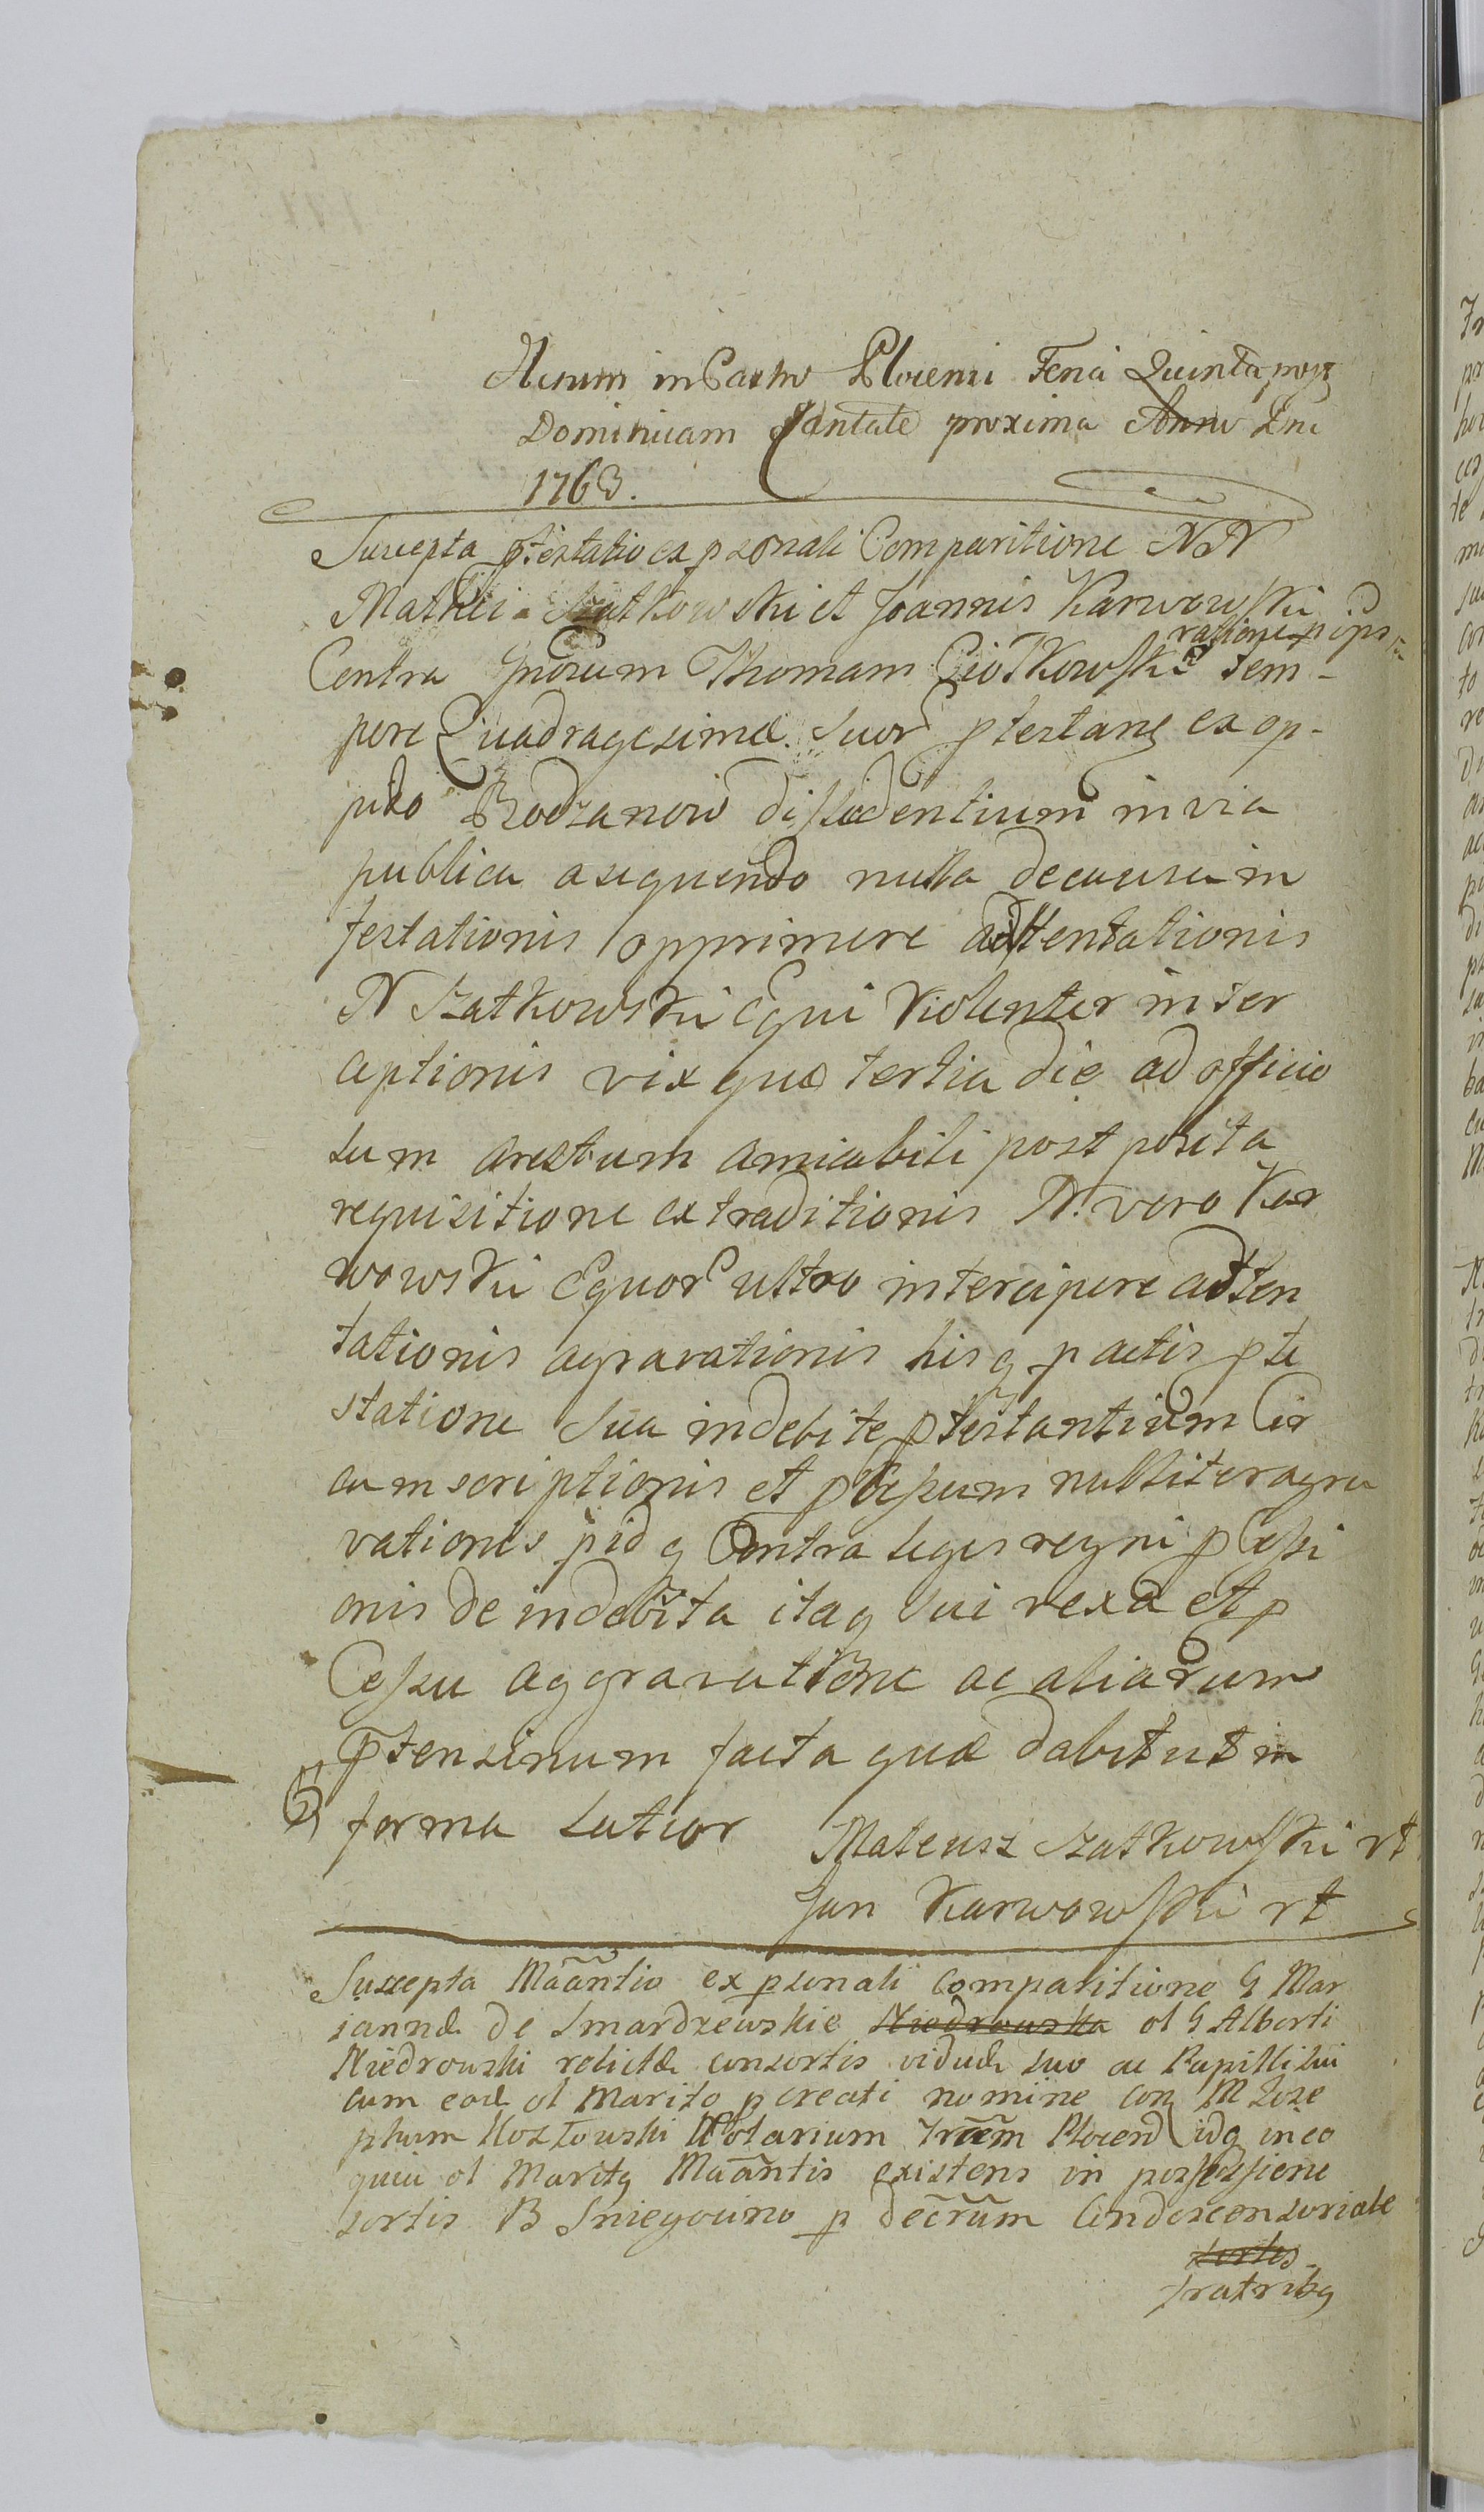 Actum in Castro Plocensi Feria Quinta post
Dominicam Cantate proxima Anno Dni
1763.
Suscepta ptestatio ex psonali Comparitione NN
Mathei Szatkowski et Joannis Karwowski
ratione p ips
Contra Gnosum Thomam Ciotkowski tem-
pore Quadragesimæ suor ptestang ex op-
pido Bodzanow discedentium in via
publica asequendo nulla de causa in
festationis opprimere adttentationis
N Szatkowski Equi Violenter inter
ceptionis vix quæ tertia die ad officio
sum arestum amicabili post posita
requisitione extraditionis N. vero Kar
wowski Equor ultro intercipere adtten
tationis agravationis hisq pactis pte
statione sua indebite ptestantium Cir
cumscriptionis et pcessum nulliter agra
vationis pidq Contra leges regni pcessi
onis de indebita itaq sui vexa et p
Cessu aggravatione ac aliarum
ptensinum facta quæ dabitut in
forma Latior
Mateusz Szatkowski rt
Jan Karwowski rt
Suscepta Maantio ex psonali comparitione G Mar
iannæ de Smardzewskie Niedrowska ol G Alberti
Niedrowski relictæ consortis viduæ suo ac Pupilli sui
cum eod ol Marito pcreati nomine con M Joze
phum Kozłowski Notarium Trrem Plocen idq in eo
quia ol Maritq Maantis existens in possessione
sortis B Sniegocino p decrum Condescensoriale
sortis
fratribq